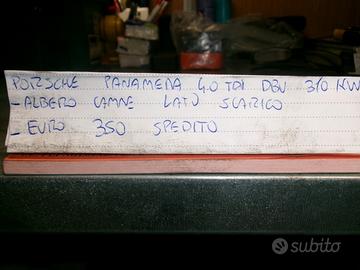 PORSCHE PANAMERA 4.0 TDI DBU 310 KW
- ALBERO CAMME LATO SCARICO
- EURO 350 SPEDITO
subito